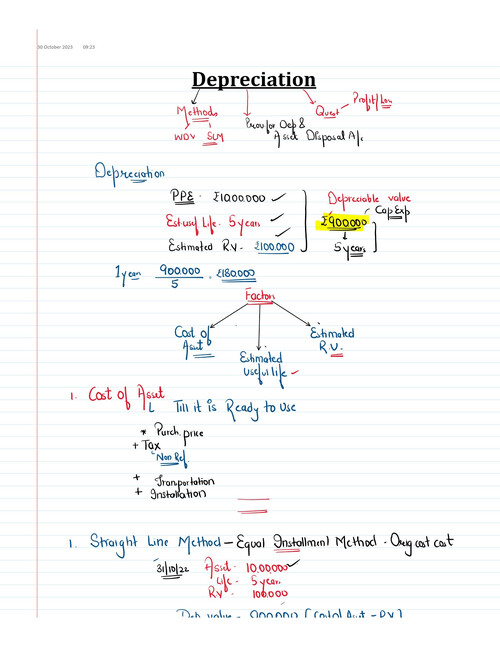 30 October 2023 09:23
Depreciation
Methods
WDV SLM
Prov for Dep &
Asset Disposal A/c
Quest - Profit/Loss
Depreciation
PPE - £1000.000 ✓
Est useful Life - 5 years ✓
Estimated R.V. - £100.000 ✓
Depreciable value
£900000 Cap Exp
5 years
1 year 900.000 / 5 = £180.000
Factors
Cost of
Asset
Estimated
Useful life
Estimated
R.V.
1. Cost of Asset
L Till it is Ready to Use
* Purch. price
+ Tax
Non Ref.
+ Transportation
+ Installation
1. Straight Line Method - Equal Installment Method - Orig cost
31/10/22 Asset - 10.00000 ✓
Life - 5 years
RV - 100.000